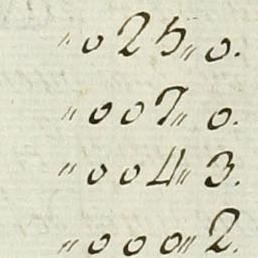 "025"0.
"007"0.
"004"3.
"000"2.